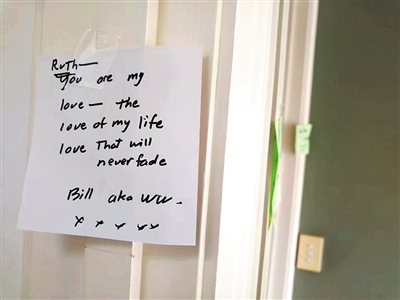 Ruth—
You are my
love — the
love of my life
love that will
never fade
Bill aka ww.
x x x xx